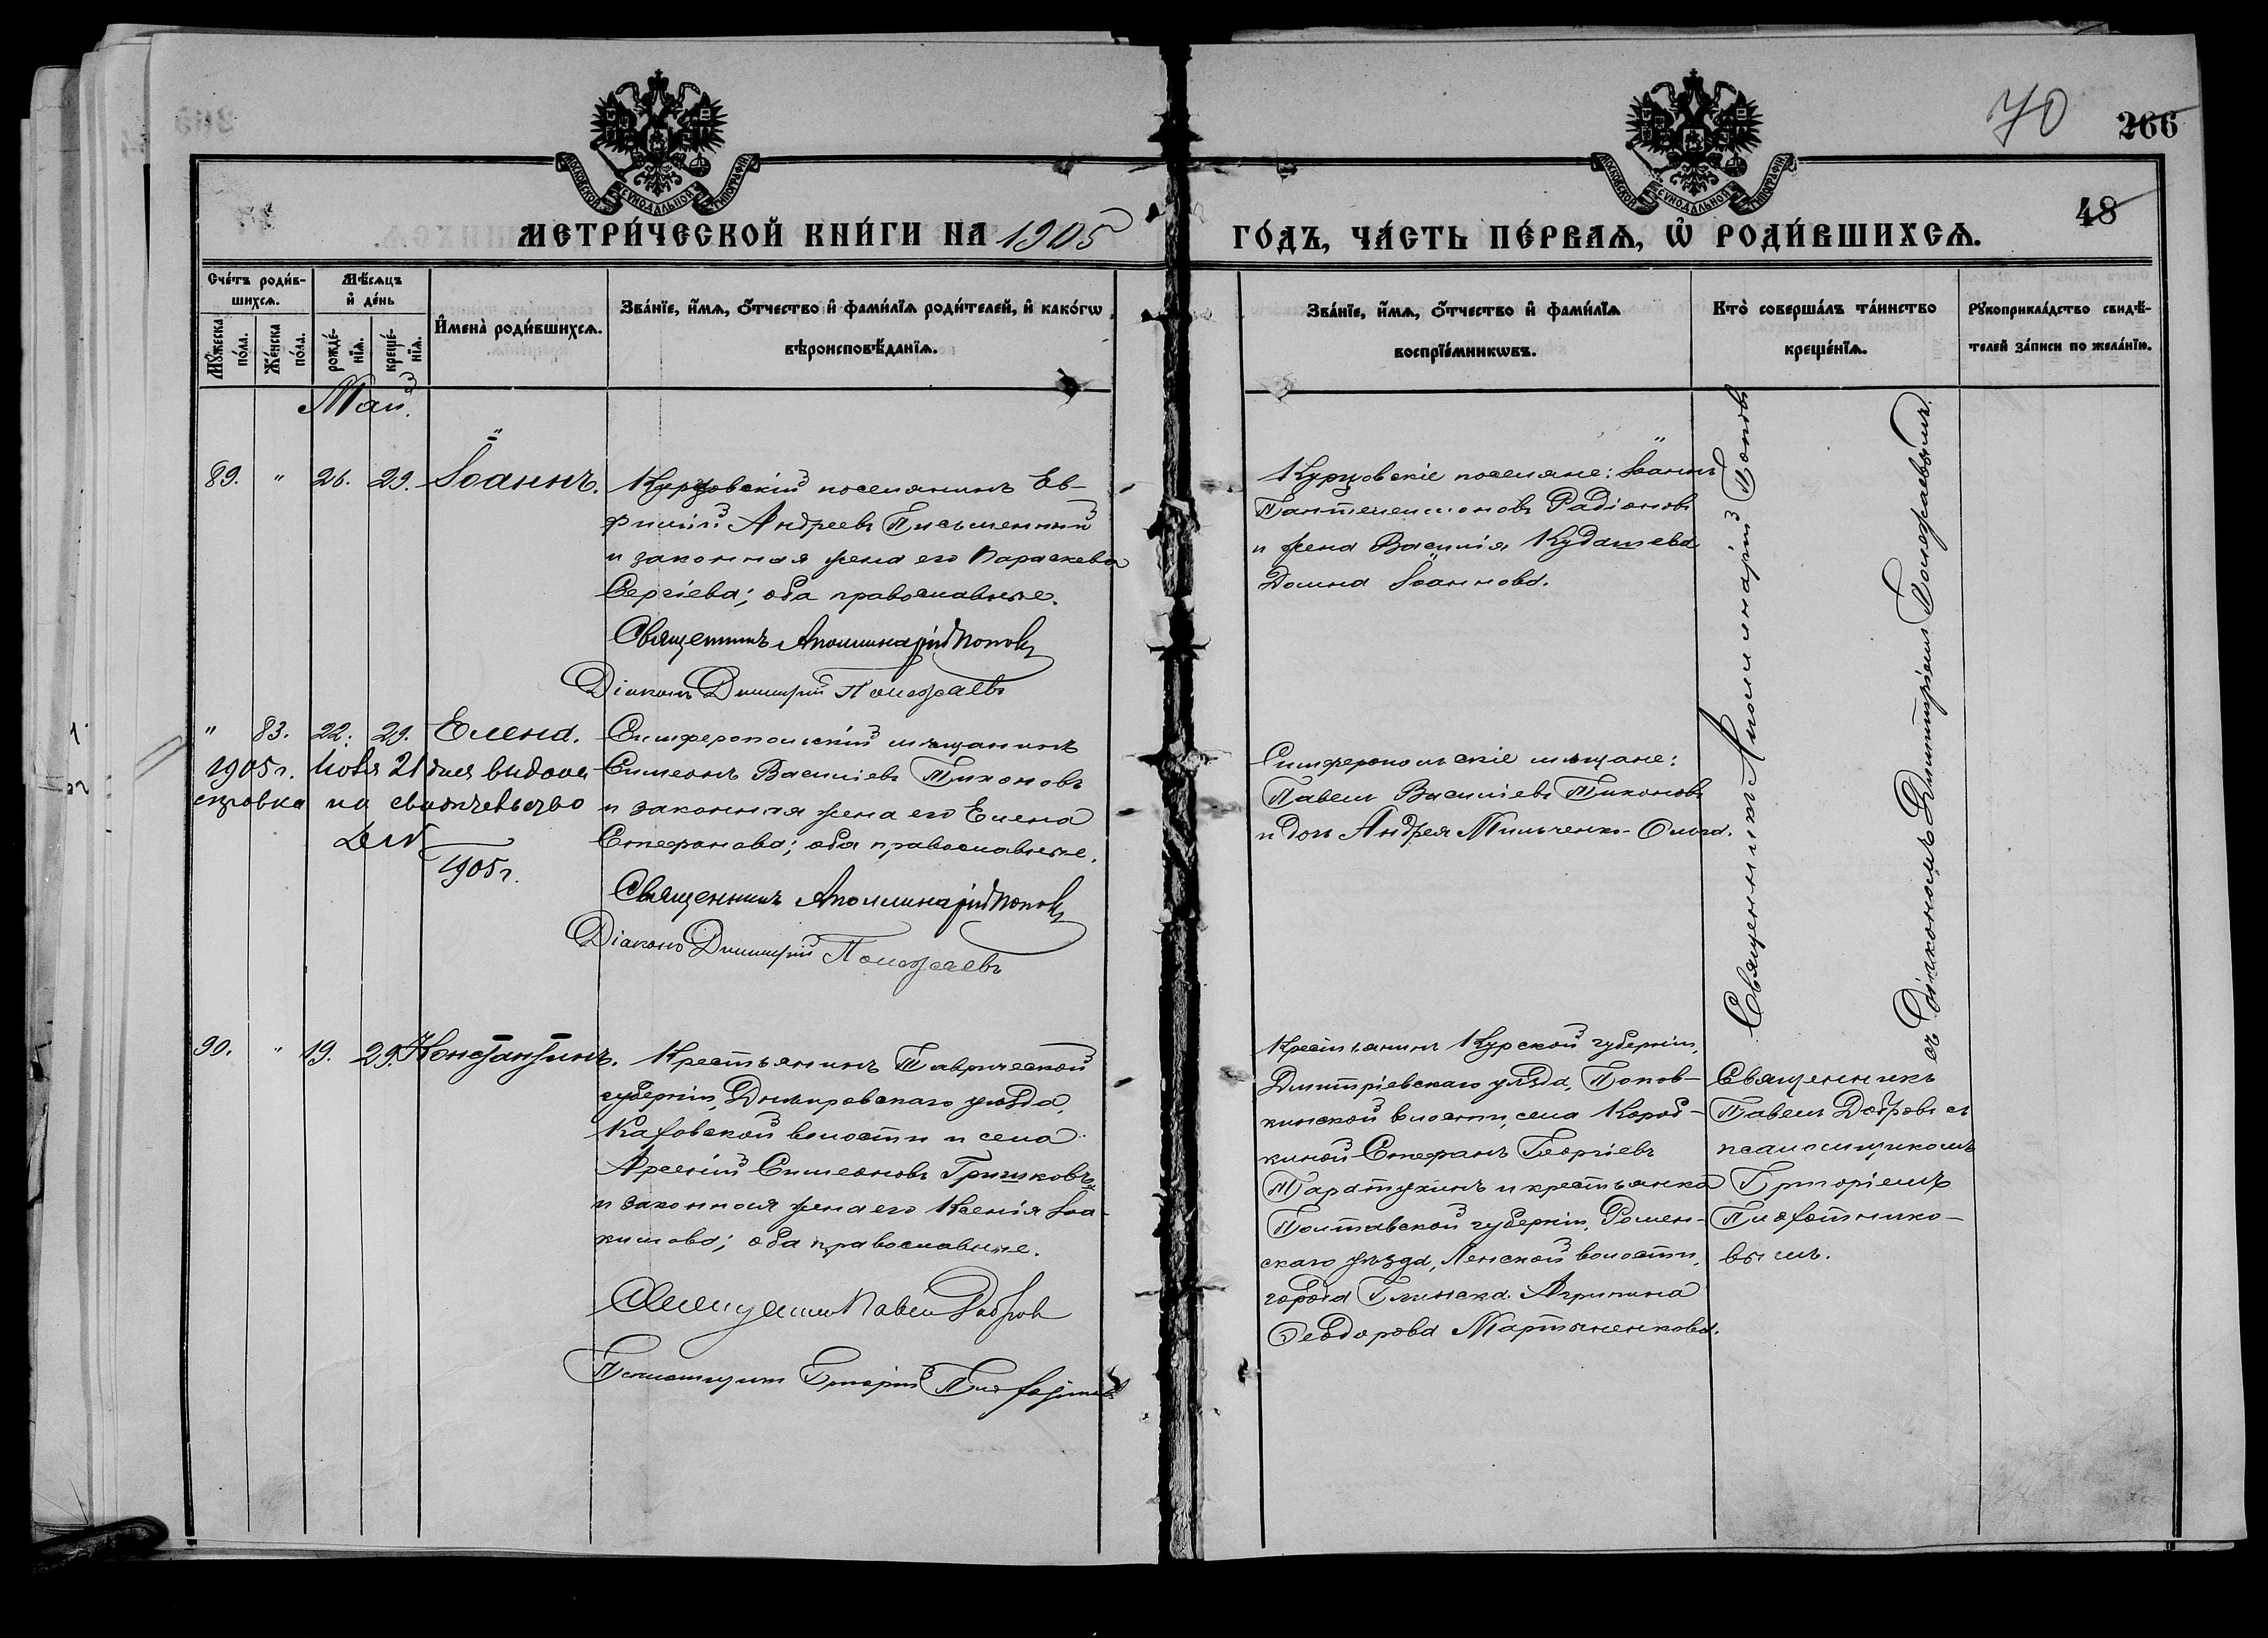 70
266
48
МОСКОВСКОЙ СѴНОДАЛЬНОЙ ТИПОГРАФІИ
МОСКОВСКОЙ СѴНОДАЛЬНОЙ ТИПОГРАФІИ
МЕТРИ́ЧЕСКОЙ КНИ́ГИ НА 1905
ГО́ДЪ, ЧА́СТЬ ПЕ́РВАѦ, Ѡ҆ РОДИ́ВШИХСѦ.
Сче́тъ роди́в-
шихсѧ.
Мꙋ́жеска
по́ла.
Же́нска
по́ла.
Мѣ́сѧцъ
и҆ де́нь
рожде́-
нїѧ.
креще́-
нїѧ.
И҆мена̀ роди́вшихсѧ.
Зва́нїе, и҆́мѧ, ѻ҆́тчество и҆ фами́лїѧ роди́телей, и҆ како́гѡ
вѣроисповѣ́данїѧ.
Зва́нїе, и҆́мѧ, ѻ҆́тчество и҆ фами́лїѧ
воспрїе́мникѡвъ.
Кто̀ соверша́лъ та́инство
креще́нїѧ.
Рꙋкоприкла́дство свидѣ́-
телей за́писи по жела́нїю.
Май.
89. " 26. 29. Іоаннъ.
Курцовскій поселянинъ Ев-
фимій Андреевъ Письменный
и законная жена его Параскева
Сергіева; оба православные.
Священникъ Аполлинарій Поповъ
Діаконъ Димитрій Полефаевъ
Курцовскіе поселяне: Іоаннъ
Пантелеимоновъ Радіоновъ
и жена Василія Кудашева
Домна Іоаннова.
Священникъ Аполлинарій Поповъ
съ діакономъ Димитріемъ Полефаевымъ.
" 83. 22. 29. Елена.
1905 г. Ноя 21 дня выдана
справка на свидѣтельство
1905 г.
Симферопольскій мѣщанинъ
Симеонъ Василіевъ Тихоновъ
и законная жена его Елена
Стефанова; оба православные.
Священникъ Аполлинарій Поповъ
Діаконъ Димитрій Полефаевъ
Симферопольскіе мѣщане:
Павелъ Василіевъ Тихоновъ
и дочь Андрея Мильченко-Ольга.
90. " 19. 29. Константинъ.
Крестьянинъ Таврической
губерніи, Днѣпровскаго уѣзда,
Каховской волости и села
Арсеній Симеоновъ Гришковъ
и законная жена его Ксенія Іоа-
кимова; оба православные.
Священникъ Павелъ Добровъ
Псаломщикъ Григорій
Крестьянинъ Курской губерніи,
Дмитріевскаго уѣзда, Попов-
кинской волости, села Короб-
киной Стефанъ Георгіевъ
Таратухинъ и крестьянка
Полтавской губерніи, Ромен-
скаго уѣзда, Ленской волости,
города Глинска Агрипина
Ѳеодорова Мартыненкова.
Священникъ
Павелъ Добровъ съ
псаломщикомъ
Григоріемъ
Плохотнико-
вымъ.